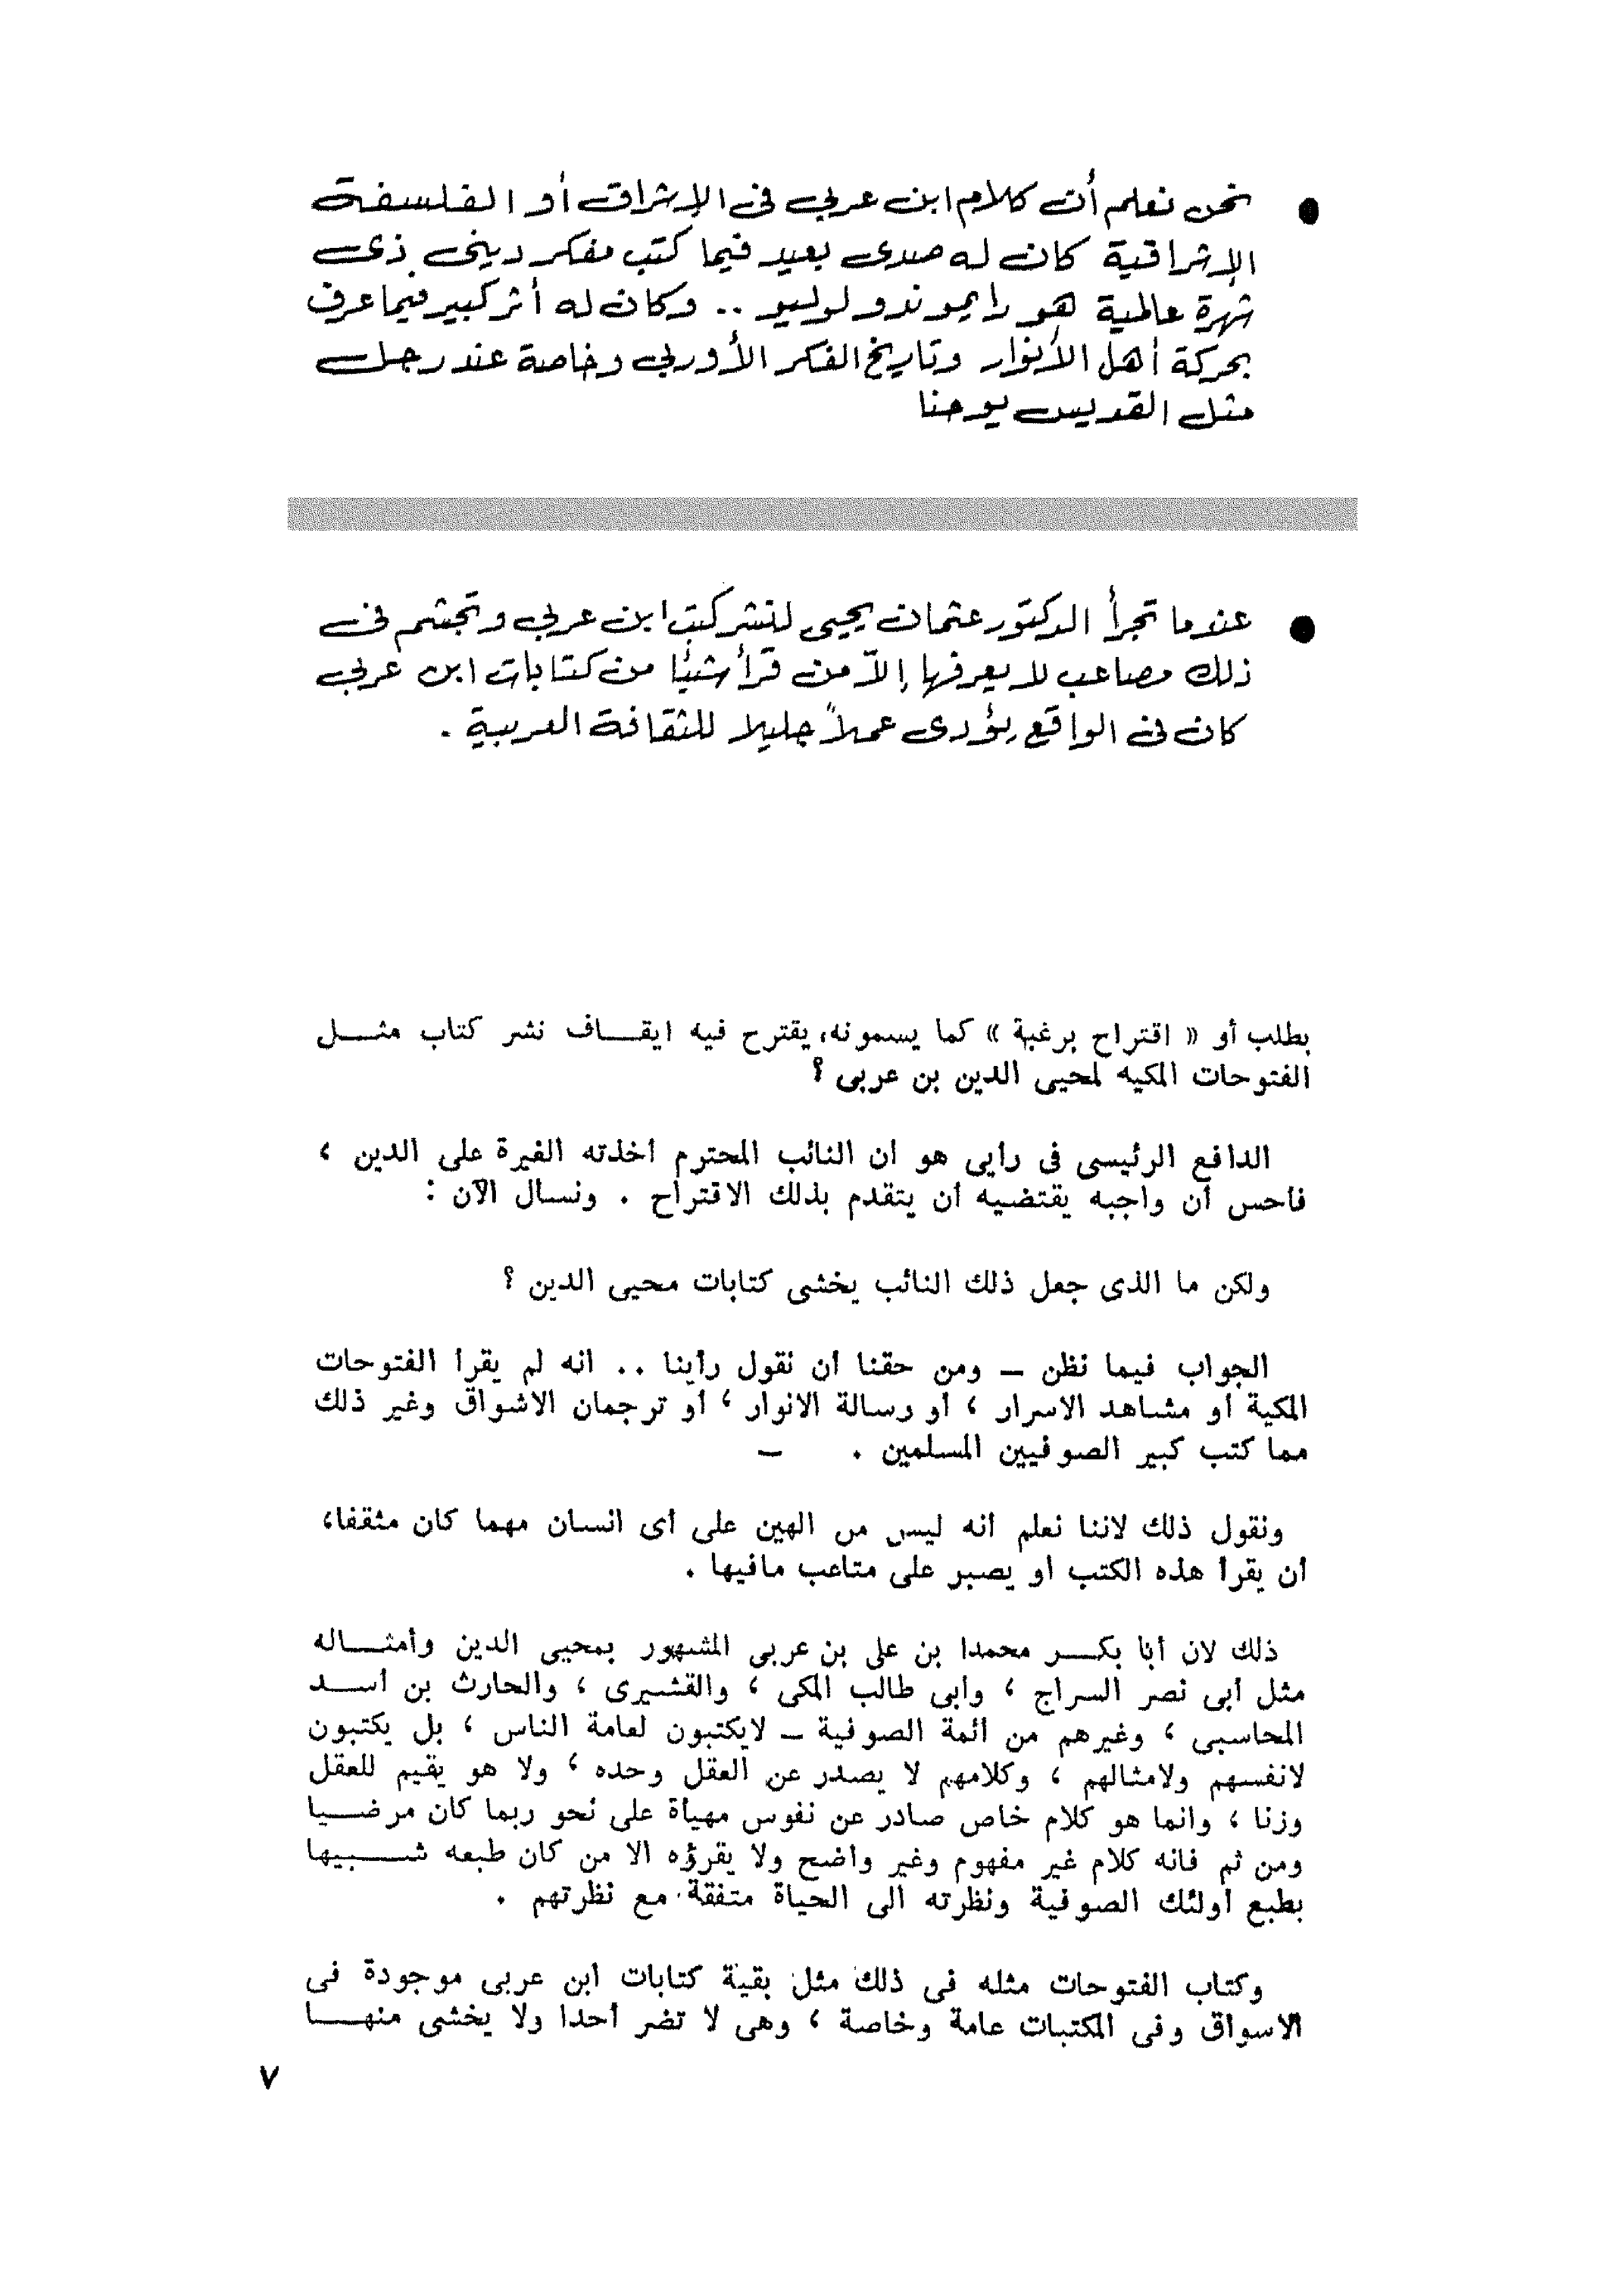 ● نحن نعلم أن كلام ابن عربي في الإشراق أو الفلسفة
الإشراقية كان له صدى بعيد فيما كتب مفكر ديني ذى
شهرة عالمية هو رايموندو لوليو .. وكان له أثر كبير فيما عرف
بحركة أهل الأنوار وتاريخ الفكر الأوربي وخاصة عند رجل
مثل القديس يوحنا
● عندما تجرأ الدكتور عثمان يحيى لنشر كتب ابن عربي وتجشم في
ذلك مصاعب لا يعرفها إلا من قرأ شيئا من كتابات ابن عربي
كان في الواقع يؤدى عملاً جليلا للثقافة العربية .
بطلب أو « اقتراح برغبة » كما يسمونه، يقترح فيه ايقـــاف نشر كتاب مثـــل
الفتوحات المكيه لمحيى الدين بن عربى ؟
الدافع الرئيسى فى رأيى هو أن النائب المحترم أخذته الغيرة على الدين ،
فأحس أن واجبه يقتضيه أن يتقدم بذلك الاقتراح . ونسأل الآن :
ولكن ما الذى جعل ذلك النائب يخشى كتابات محيى الدين ؟
الجواب فيما نظن ــ ومن حقنا أن نقول رأينا .. انه لم يقرأ الفتوحات
المكية أو مشاهد الاسرار ، أو رسالة الانوار ، أو ترجمان الاشواق وغير ذلك
مما كتب كبير الصوفيين المسلمين . ــ
ونقول ذلك لاننا نعلم أنه ليس من الهين على أى انسان مهما كان مثقفا،
أن يقرأ هذه الكتب أو يصبر على متاعب مافيها .
ذلك لان أبا بكـــر محمدا بن على بن عربى المشهور بمحيى الدين وأمثـــاله
مثل أبى نصر السراج ، وأبى طالب المكى ، والقشيرى ، والحارث بن أســـد
المحاسبى ، وغيرهم من أئمة الصوفية ــ لايكتبون لعامة الناس ، بل يكتبون
لانفسهم ولامثالهم ، وكلامهم لا يصدر عن العقل وحده ، ولا هو يقيم للعقل
وزنا ، وانما هو كلام خاص صادر عن نفوس مهيأة على نحو ربما كان مرضـــيا
ومن ثم فانه كلام غير مفهوم وغير واضح ولا يقرؤه الا من كان طبعه شـــبيها
بطبع أولئك الصوفية ونظرته الى الحياة متفقة مع نظرتهم .
وكتاب الفتوحات مثله فى ذلك مثل بقية كتابات ابن عربى موجودة فى
الاسواق وفى المكتبات عامة وخاصة ، وهى لا تضر أحدا ولا يخشى منهـــا
٧